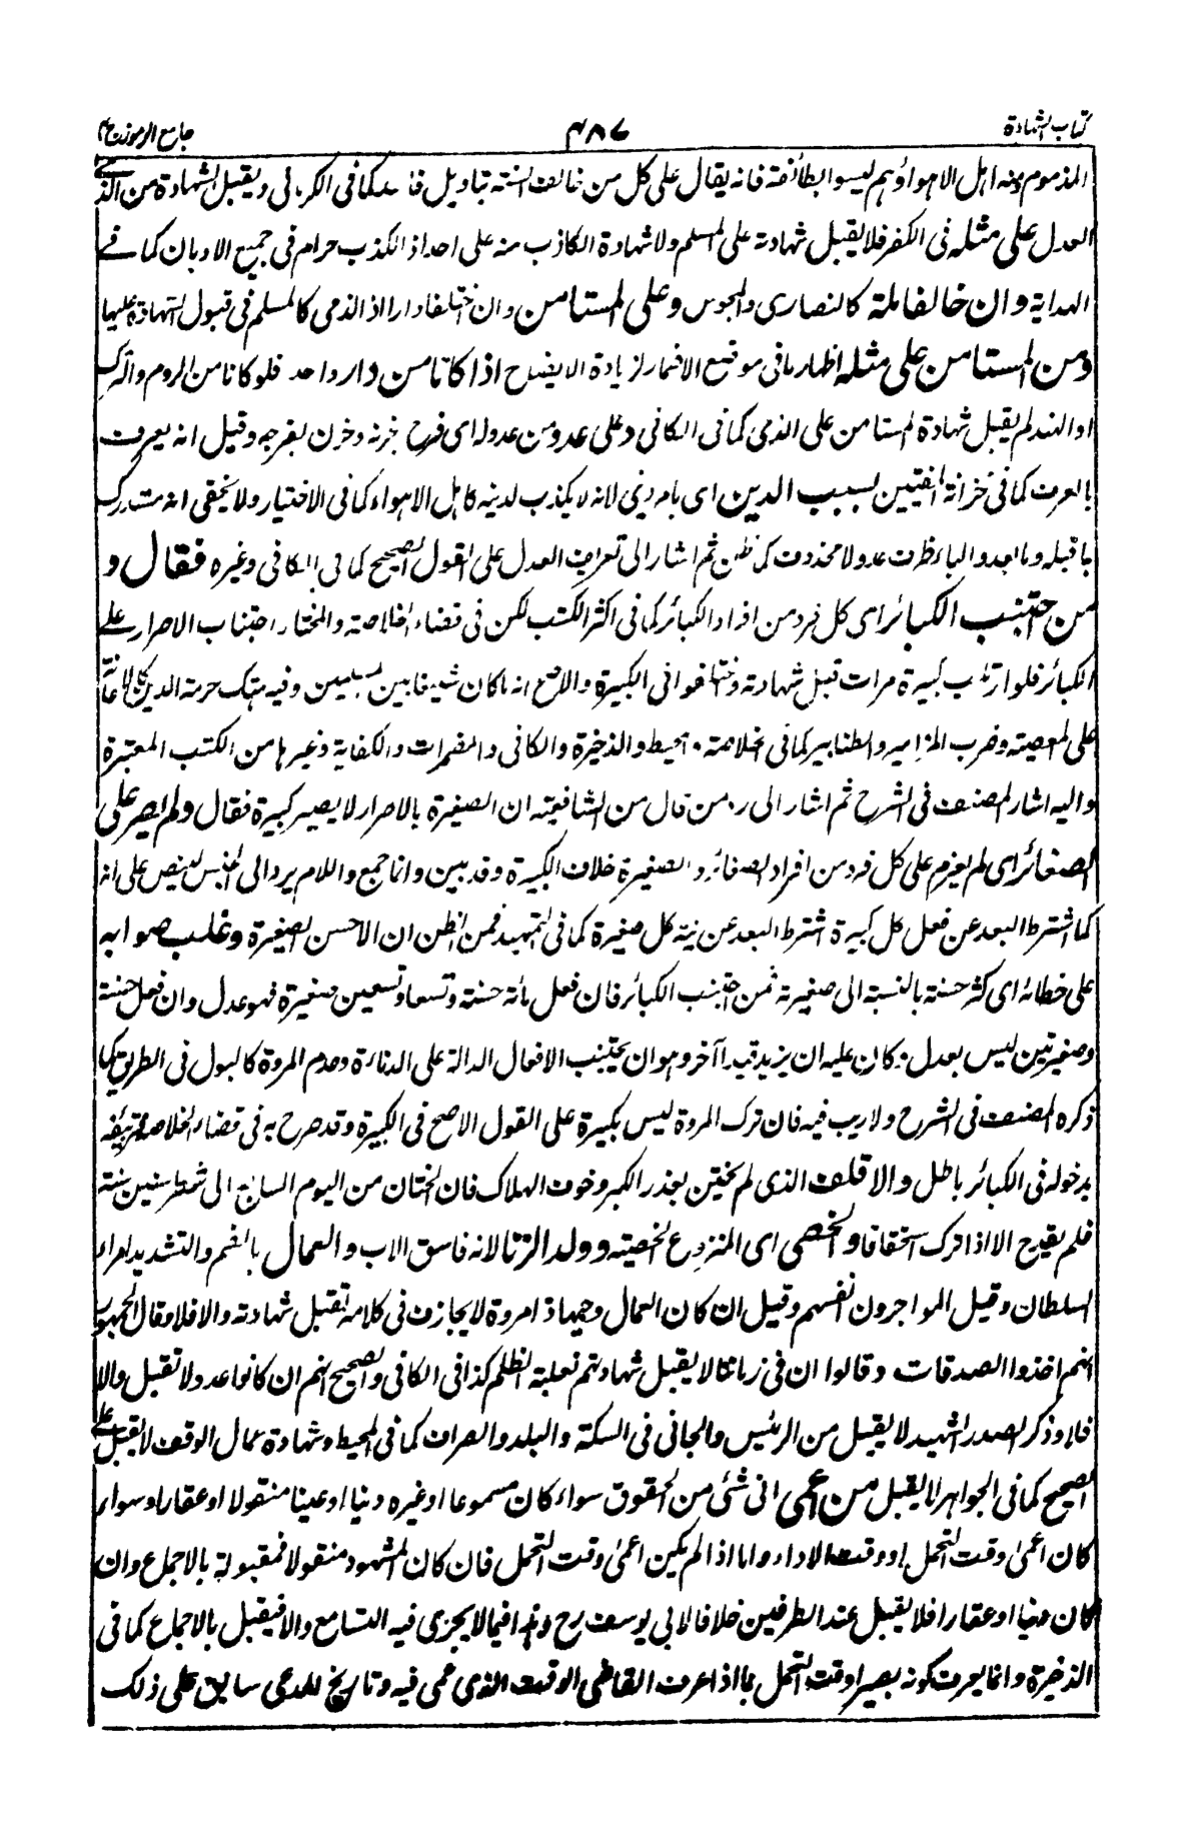 كتاب الشهادة
٤٨٧
جامع الرموز ج٢
المذموم ومنه اهل الاهواء وهم ليسوا بطائفة فانه يقال على كل من خالف السنة بتاويل فاسد كما فى الكرمانى ويقبل الشهادة من الذمى
العدل على مثله فى الكفر فلا يقبل شهادته على المسلم ولا شهادة الكاذب منه على احد اذ الكذب حرام فى جميع الاديان كما فى
الهداية وان خالفا ملة كالنصارى والمجوس وعلى المستامن وان اختلفا دارا اذ الذمى كالمسلم فى قبول الشهادة عليها
ومن المستامن على مثله اظهار ما فى موقع الاضمار لزيادة الايضاح اذا كانا من دار واحد فلو كانا من الروم والترك
او الهند لم يقبل شهادة المستامن على الذمى كما فى الكافى وعلى عدو من عدوله اى فرح بحزنه وحزن بفرحه وقيل انه يعرف
بالعرف كما فى خزانة المفتين بسبب الدين اى بامر دينى لانه لا يكذب لدينه كاهل الاهواء كما فى الاختيار ولا يخفى انه مستدرك
بما قبله وما بعده والباء ظرف عدو لا محذوف كما ظن ثم اشار الى تعريف العدل على القول الصحيح كما فى الكافى وغيره فقال و
من اجتنب الكبائر اى كل فرد من افراد الكبائر كما فى اكثر الكتب لكن فى قضاء الخلاصة والمختار اجتناب الاصرار على
الكبائر فلو ارتكب كبيرة مرات قبل شهادته واختلفوا فى الكبيرة والاصح انه ما كان شنيعا بين المسلمين وفيه هتك حرمة الدين كالاعانة
على المعصية وضرب المزامير والطنابير كما فى الخلاصة والمحيط والذخيرة والكافى والمضمرات والكفاية وغيرها من الكتب المعتبرة
واليه اشار المصنف فى الشرح ثم اشار الى رد من قال من الشافعية ان الصغيرة بالاصرار لا يصير كبيرة فقال ولم يصر على
الصغائر اى لم يعزم على كل فرد من افراد الصغائر والصغيرة خلاف الكبيرة وقد بين وانما جمع واللام يرد الى الجنس لينص على انه
كما اشترط البعد عن فعل كل كبيرة اشترط البعد عن نية كل صغيرة كما فى التمهيد فمن الظن ان الاحسن الصغيرة وغلب صوابه
على خطائه اى كثر حسنة بالنسبة الى صغيرته فمن اجتنب الكبائر فان فعل مائة حسنة وتسعا وتسعين صغيرة فهو عدل وان فعل حسنة
وصغيرتين ليس بعدل وكان عليه ان يزيد قيدا آخر وهو ان يجتنب الافعال الدالة على الدناءة وعدم المروة كالبول فى الطريق كما
ذكره المصنف فى الشرح ولا ريب فيه فان ترك المروة ليس بكبيرة على القول الاصح فى الكبيرة وقد صرح به فى قضاء الخلاصة فتزييفه
بدخوله فى الكبائر باطل والاقلف الذى لم يختن بعذر الكبر وخوف الهلاك فان الختان من اليوم السابع الى عشر سنين سنة
فلم يقدح الا اذا ترك استخفافا والخصى اى المنزوع الخصية وولد الزنا لانه فاسق الاب والعمال بالضم والتشديد امراء
السلطان وقيل المواجرون انفسهم وقيل ان كان العمال وجيها ذا مروة لا يجازف فى كلامه تقبل شهادته والا فلا وقال الجمهور
انهم اخذوا الصدقات وقالوا ان فى زماننا لا يقبل شهادتهم لغلبة الظلم كذا فى الكافى والصحيح انهم ان كانوا عدولا تقبل والا
فلا وذكر الصدر الشهيد لا يقبل من الرئيس والجانى فى السكة والبلد والصراف كما فى المحيط وشهادة عمال الوقف لا يقبل على
الصحيح كما فى الجواهر لا يقبل من اعمى فى شئ من الحقوق سواء كان مسموعا او غيره دينا او عينا منقولا او عقارا وسواء
كان اعمى وقت التحمل او وقت الاداء واما اذا لم يكن اعمى وقت التحمل فان كان المشهود منقولا فمقبولة بالاجماع وان
كان دينا او عقارا فلا يقبل عند الطرفين خلافا لابى يوسف رح وهذا فيما لا يجرى فيه التسامع والا فيقبل بالاجماع كما فى
الذخيرة وانما يعرف كونه بصيرا وقت التحمل بما اذا عرف القاضى الوقت الذى عمى فيه وتاريخ المدعى سابق على ذلك